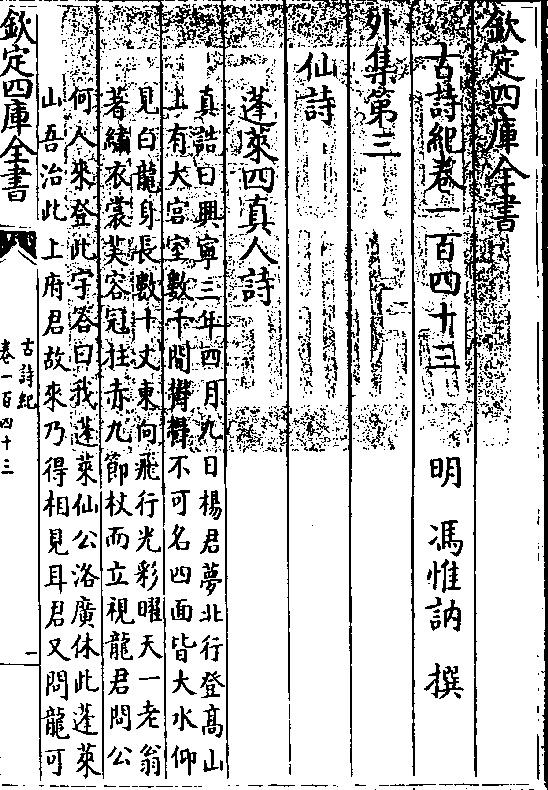 欽定四庫全書
古詩紀卷一百四十三　明　馮惟訥　撰
外集第三
仙詩
蓬萊四真人詩
真誥曰興寧三年四月九日楊君夢北行登髙山
上有大宫室數千間欝欝不可名四面皆大水仰
見白龍身長數十丈東向飛行光彩曜天一老翁
著繡衣裳芙容冠拄赤九節杖而立視龍君問公
何人來登此宇答曰我蓬萊仙公洛廣休此蓬萊
山吾治此上府君故來乃得相見耳君又問龍可
欽定四庫全書
古詩紀
卷一百四十三
一